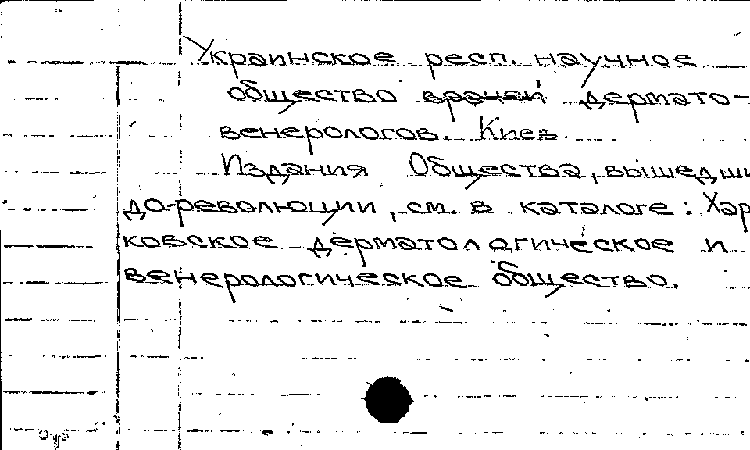 Украинское респ. научное
общество врачей дермато-
венерологов. Киев
Издания Общества, вышедши
до революции, см. в каталоге: Хар
ковское дерматологическое и
венерологическое общество.